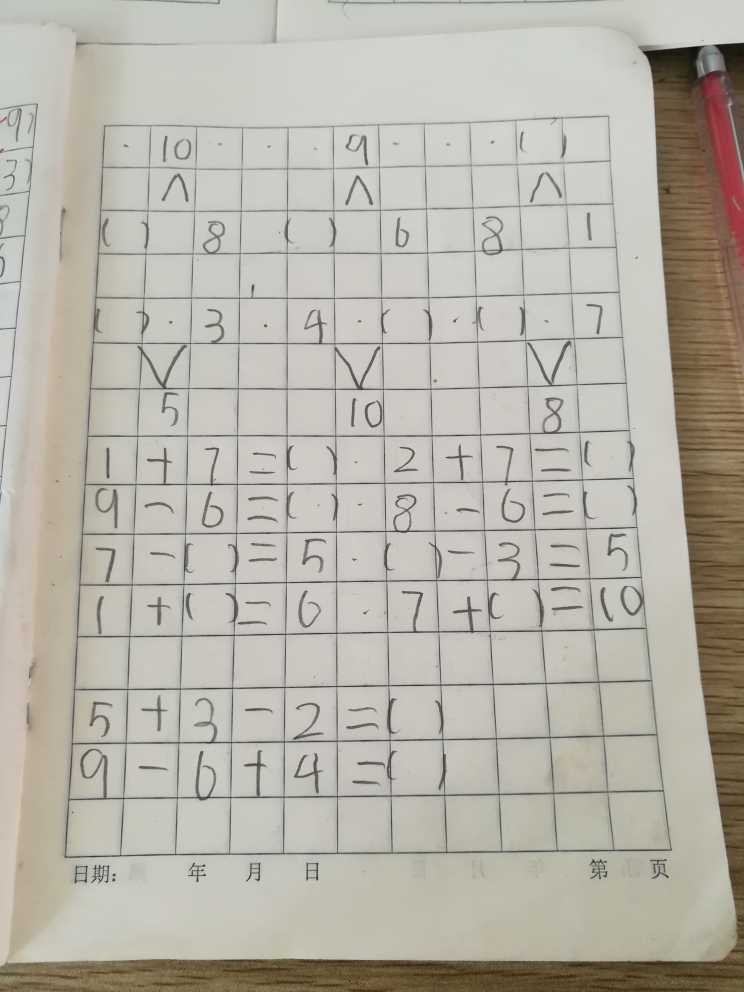 · 10 · · · 9 · · · ( )
∧ ∧ ∧
( ) 8 ( ) 6 8 1
( ) · 3 · 4 · ( ) · ( ) · 7
∨ ∨ ∨
5 10 8
1 + 7 = ( ) · 2 + 7 = ( )
9 - 6 = ( ) · 8 - 6 = ( )
7 - ( ) = 5 · ( ) - 3 = 5
1 + ( ) = 6 · 7 + ( ) = 10
5 + 3 - 2 = ( )
9 - 6 + 4 = ( )
日期: 年 月 日 第 页